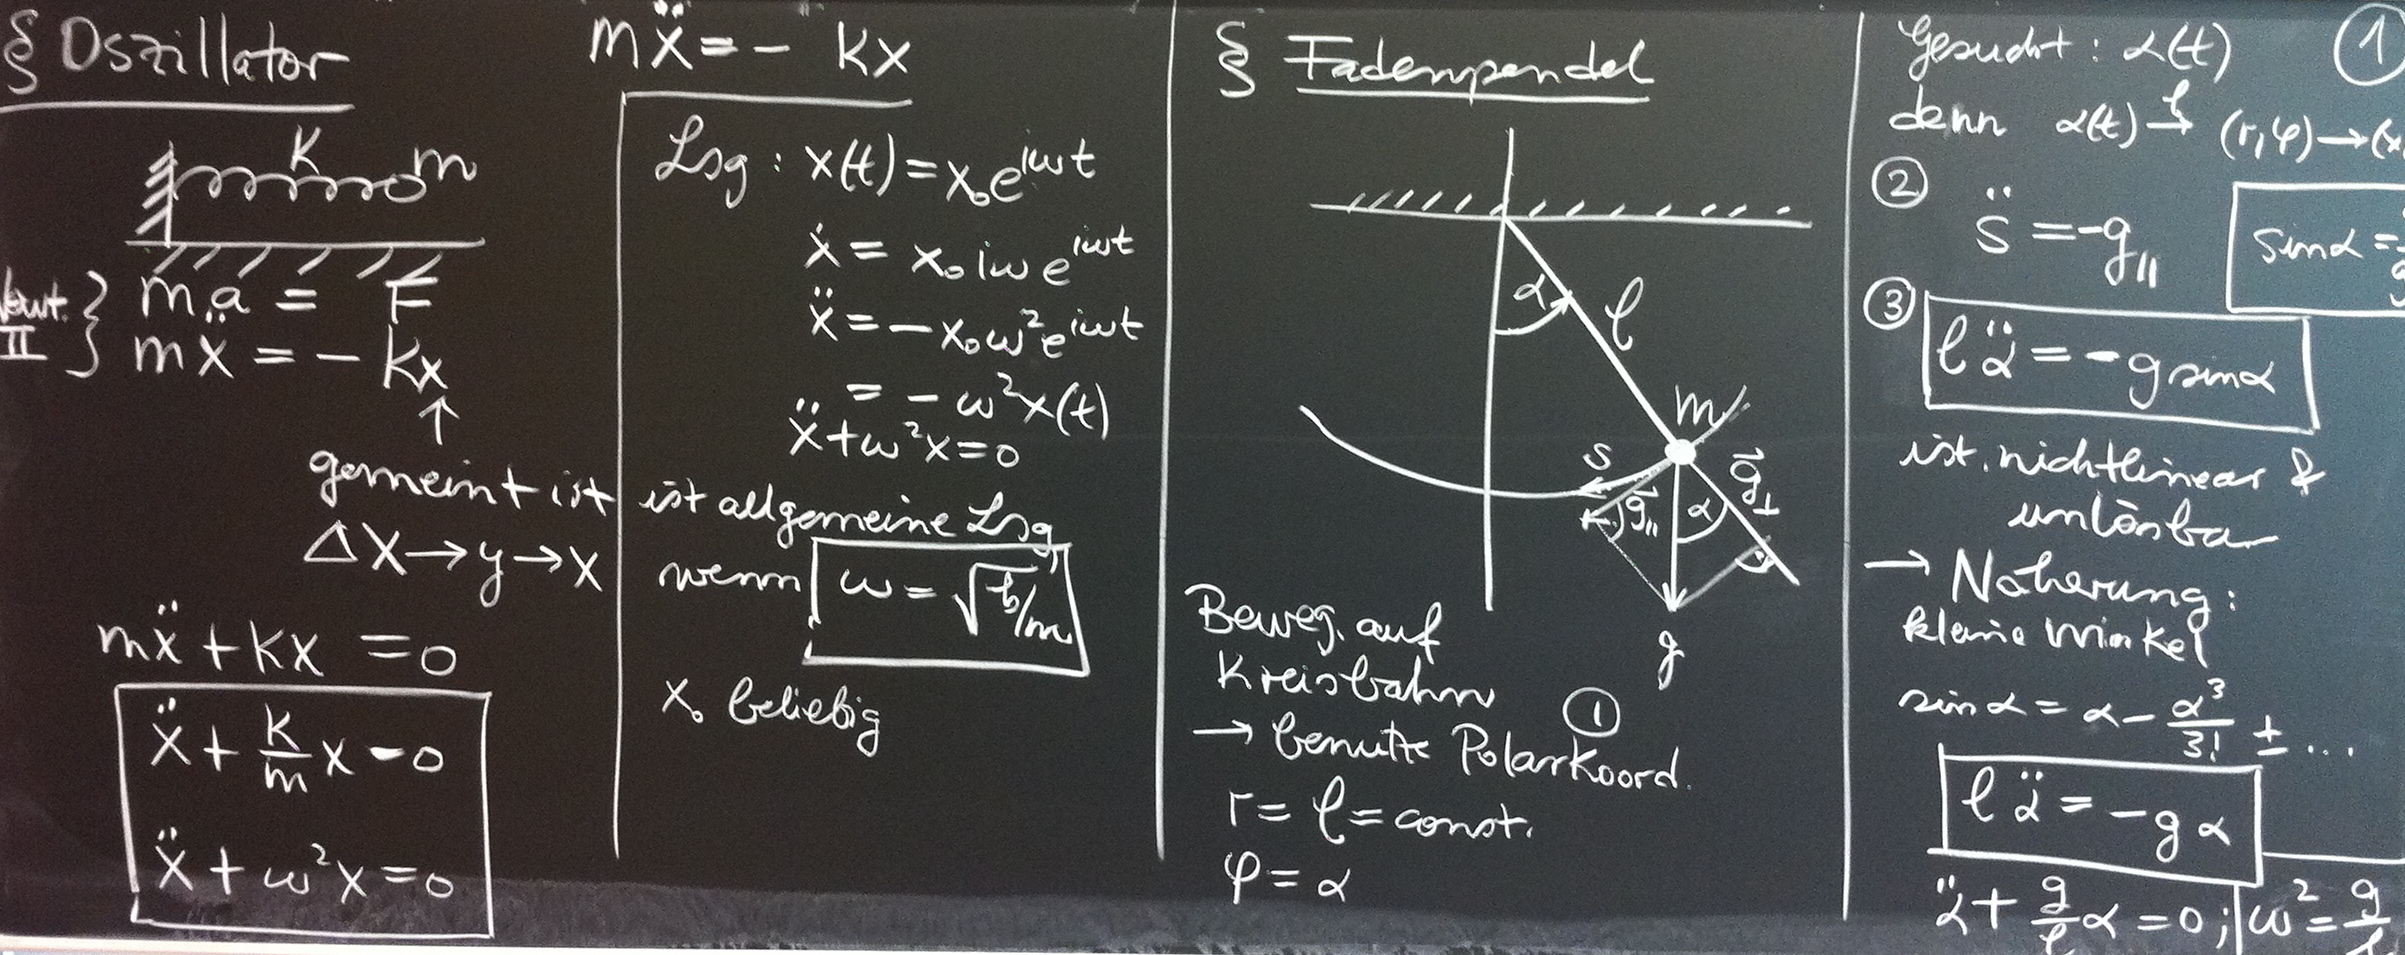 § Oszillator
K m
Newt. II } ma = F
mẍ = - kx
↑
gemeint ist
Δx→y→x
mẍ + kx = 0
ẍ + k/m x = 0
ẍ + ω²x = 0
mẍ = - kx
Lsg : x(t) = x₀e^{iωt}
ẋ = x₀ iω e^{iωt}
ẍ = - x₀ω²e^{iωt}
= - ω²x(t)
ẍ + ω²x = 0
ist allgemeine Lsg,
wenn ω = √k/m
x₀ beliebig
§ Fadenpendel
α l
m
s g⃗∥ α g⃗⊥
g
Beweg. auf
Kreisbahn
①
→ benutze Polarkoord.
r = l = const.
φ = α
Gesucht : α(t) ①
denn α(t) →^{l} (r,φ) → (x
② s̈ = -g∥ sinα =
③ l α̈ = - g sinα
ist nichtlinear &
unlösba
→ Näherung:
kleine Winkel
sin α = α - α³/3! ± ...
l α̈ = - g α
α̈ + g/l α = 0 ; ω² = g/l